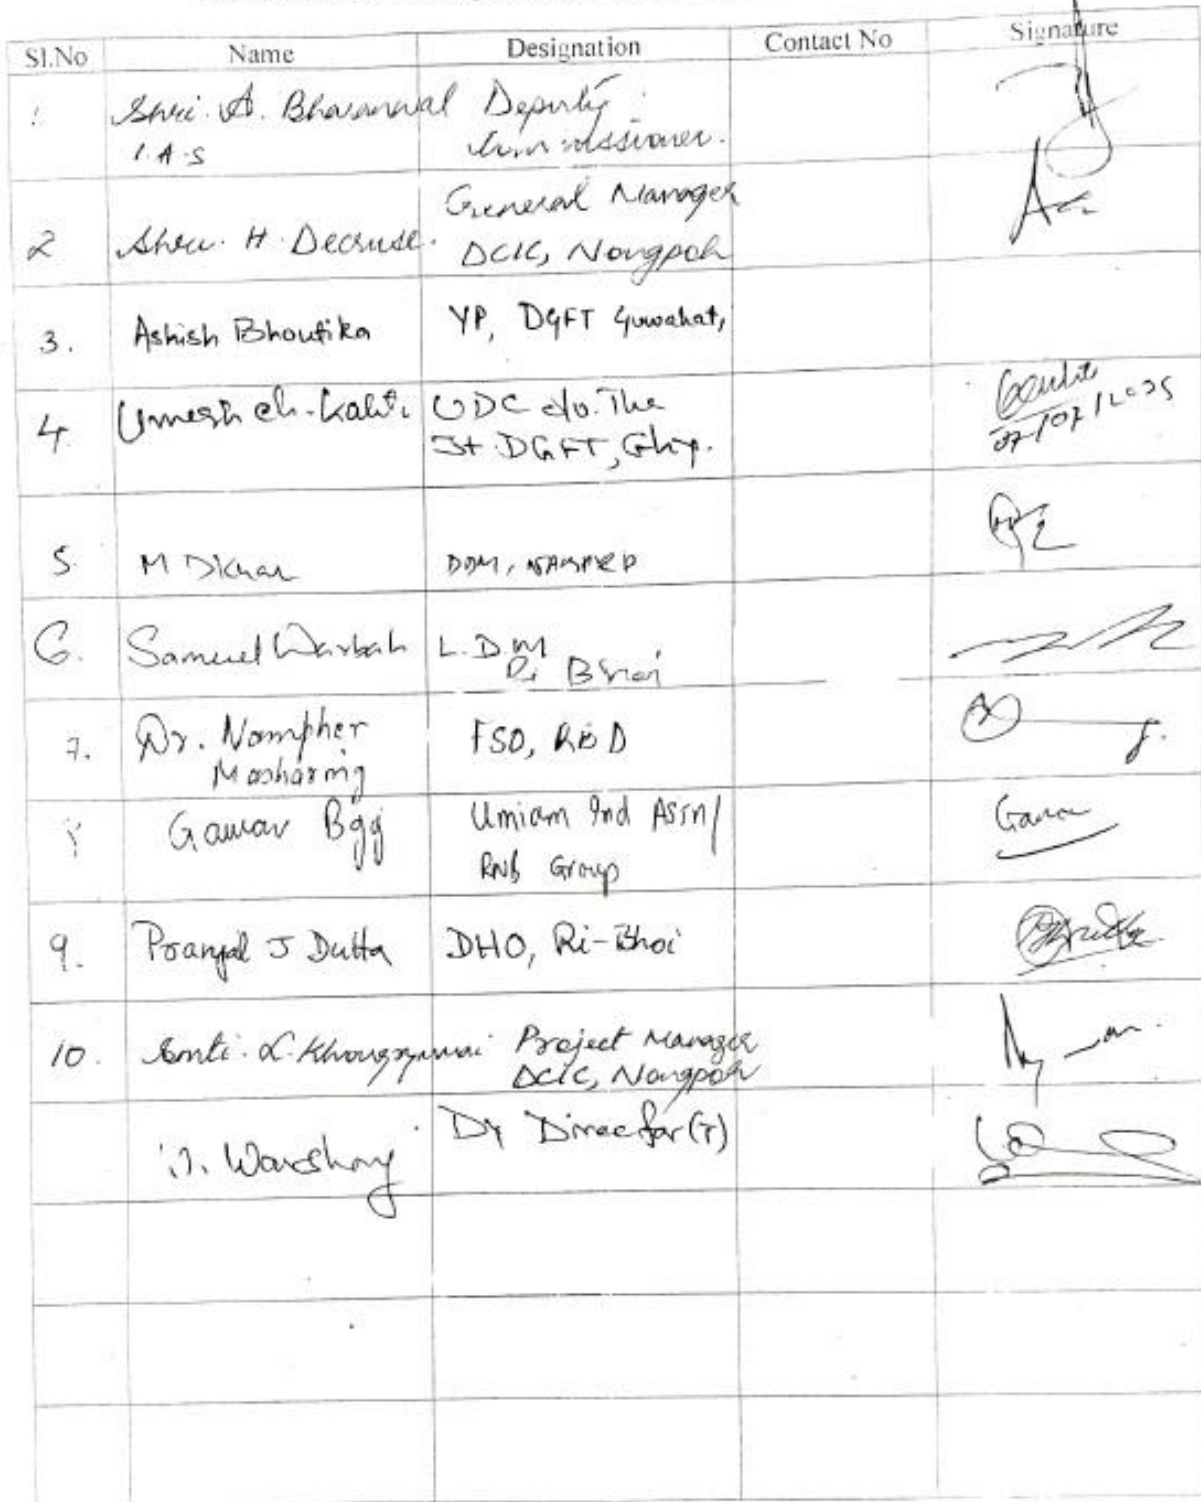 Sl.No Name Designation Contact No Signature
1 Shri. A. Bharanwal Deputy
I.A.S Commissioner.
General Manager
2 Shri. H. Decruse. DCIC, Nongpoh
3. Ashish Bhoutika YP, DGFT Guwahati
4. Umesh ch. Kalita UDC o/o. The
Jt. DGFT, Ghy.
07/07/2025
5. M Dkhar DDM, NABARD
6. Samuel Warbah L.D.M
Ri Bhoi
7. Dr. Nampher FSO, RBD
Masharing
8 Gaurav Umiam Ind Assn/
RNB Group
9. Pranjal J Dutta DHO, Ri-Bhoi
10. Smti. L. Project Manager
DCIC, Nongpoh
Dy Director (T)